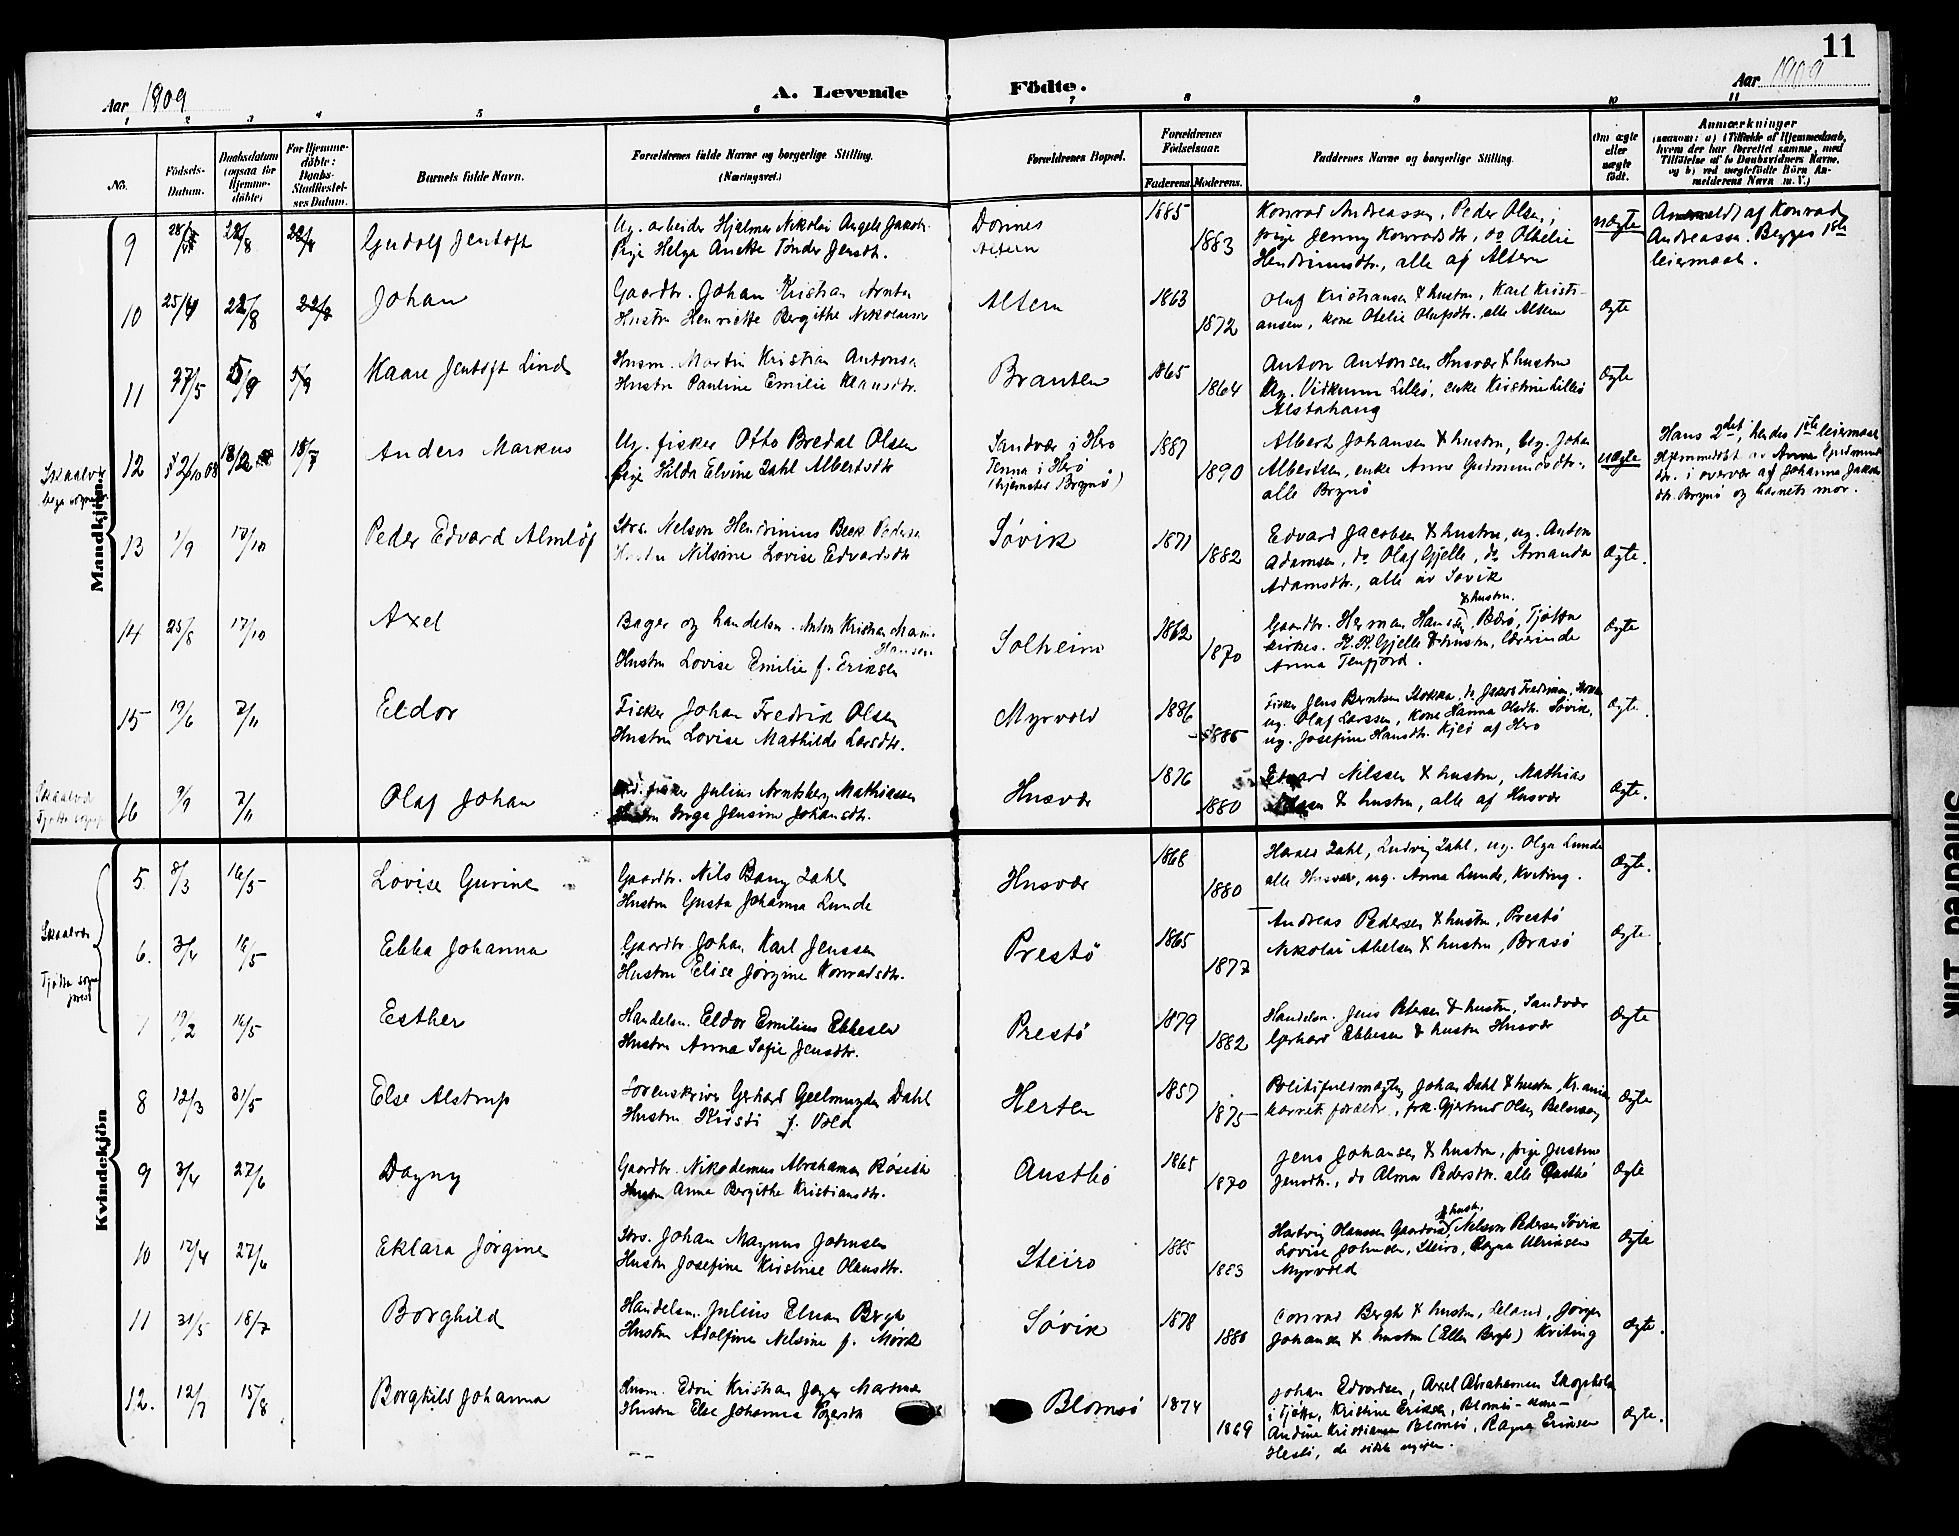 11
Aar 1909
A. Levende Födte.
Aar 1909
1 2 3 4 5 6 7 8 9 10 11
No.
Födsels-
Datum.
Daabsdatum
(ogsaa for
Hjemme-
döbte)
For Hjemme-
döbte:
Daabs-
Stadfæstel-
ses Datum.
Barnets fulde Navn.
Forældrenes fulde Navne og borgerlige Stilling.
(Næringsvei.)
Forældrenes Bopæl.
Forældrenes
Födselsaar.
Faderens. Moderens.
Faddernes Navne og borgerlige Stilling.
Om ægte
eller
uægte
födt.
Anmærkninger
(saasom: a) i Tilfælde af Hjemmedaab,
hvem der har forrettet samme, med
Tilföielse af to Daabsvidners Navne,
og b) ved uægtefödte Börn An-
melderens Navn m. V.)
Mandkjön.
9 22/8 Gudolf Jentoft
Ug. arbeider Hjalmar Nikolai Angels Jakobs.
Pige Helga Anette Tönder Jensdtr.
Dönnes
Altern
1885
1883
Konrad Andreassen, Peder Olsen,
pige Jenny Konradsdtr, do Othelie
Hendriksdtr., alle af Altern
uægte
Anmeldt af Konrad
Andreassn. Begges 1ste
leiermaal.
10 25/4 22/8 22/8 Johan
Gaardbr. Johan Kristian Arntsn
Hustru Henriette Bergithe Nikolaisn
Altern
1863
1872
Oluf Kristiansen & hustru, Karl Kristi-
ansen, kone Otelie Olufsdtr. alle Altern
Ægte
11 27/5 5/9 5/9 Kaare Jentoft Lind
Husm. Martin Kristian Antonsn
Hustru Pauline Emilie Klausdtr.
Branten
1865
1864
Anton Antonsen Husvær & hustru
Ug. Vidkunn Lillesö, enke Kristine Lillesö
Alstahaug
Ægte
Skaalvær
12 Anders Markus
Ug. fisker Otto Bredal Olsen
pige Hilda Elvine Zahl Albertsdtr
Sandvær i Herö
Tenna i Herö
(hjemster Brynö)
1887
1890
Albert Johansen & hustru, Ug. Johan
Albertsen, enke Anna Gudmundsdtr.,
alle Brynö
uægte
Hans 2det, hendes 1ste leiermaal
Hjemmedöbt av Anna Gudmund
dtr. i overvær af Johanna Jakobs
dtr. Brynö og barnets mor.
13 1/9 17/10 Peder Edvard Almlöf
Strs. Nelson Hendrinius Beck Pedersn
Hustru Nilsine Lovise Edvardsdtr
Søvik
1871
1882
Edvard Jacobsen & hustru, ug. Anton
Adamsen, do Olaf Gjelle, do Amanda
Adamsdtr., alle av Søvik
Ægte.
14 25/8 17/10 Axel
Bager og handelsm. Anton Kristian
Hansen
Hustru Lovise Emilie f. Eriksen
Solheim
1862
1870
& hustru
Gaardbr. Herman Hansen, Rødö, Tjøtta
kirkes. K. K. Gjelle & hustru, lærerinde
Anna Tenfjord.
Ægte
15 19/6 7/11 Eldor
Fisker Johan Fredrik Olsen
Hustru Lovise Mathilde Larsdtr.
Myrvold
1886
1885
Fisker Jens Berntsen Stokka, do Jakob Fredriksen,
ug. Olaf Larssen, kone Hanna Olsdtr. Søvik,
ug. Josefine Hansdtr. Kjeö af Herö
Ægte.
Skaalvær
16 9/9 7/11 Olaf Johan
fisker Julius Arntsberg Mathiassen
Hustru Inga Jensine Johansdtr.
Husvær
1876
1880
Edvard Nilssen & hustru, Mathias
& hustru, alle af Husvær
Ægte.
Kvindekjön
Skaalvær
Tjøtta sogne
prest
5. 8/3 16/5 Lovise Gurine
Gaardbr. Nils Bang Zahl
Hustru Gusta Johanna Lunde
Husvær
1868
1880
Harald Zahl, Ludvig Zahl, ug. Olga Lunde
alle Husvær, ug. Anna Lunde, Kviting.
Ægte.
6. 3/4 16/5 Ebba Johanna
Gaardbr. Johan Karl Jenssen
Hustru Elise Jörgine Konradsdtr.
Prestö
1865
1877
Andreas Pedersen & hustru, Prestö
Nikolai Abelsen & hustru, Brasö
Ægte.
7 19/2 16/5 Esther
Handelsm. Eldor Emilius Ebbesen
Hustru Anna Sofie Jensdtr.
Prestö
1879
1882
Handelsm. Jens Petersen & hustru, Sandvær
Gerhard Ebbesen & hustru Husvær
Ægte
8 12/3 31/5 Else Alstrup
Sorenskriver Gerhard Geelmuyden Dahl
Hustru Kristi f. Vold
Herten
1857
1875
Politifuldmægtig Johan Dahl & hustru, Kr.ania
barnets forældre, frk. Gjertrud Olsen Belvaag
Ægte
9 3/4 27/6 Dagny
Gaardbr. Nikodemus Abrahamsn Røseth
Hustru Anna Bergithe Kristiansdtr.
Austbö
1865
1870
Jens Johansen & hustru, pige Justine
Jensdtr., do Alma Pedersdtr. alle Austbö
Ægte
10 17/4 27/6 Eklara Jørgine
Strs. Johan Magnus Johnsen
Hustru Josefine Kristine Olausdtr.
Steiro
1885
1883
& hustr.
Hartvig Olaussen Gaardvik, Nelson Pedersen Søvik
Lovise Johnsen, Steiro, Ragna Ulriksen
Myrvold
Ægte
11 31/5 18/7 Borghild
Handelsm. Julius Elnan Bergh
Hustru Adolfine Nelsine f. Mörk
Søvik
1878
1880
Conrad Bergh & hustru, Leland, Jörgen
Johansen & hustru (Ellen Bergh) Kviting
Ægte.
12. 12/7 15/8 Borghild Johanna
Husm. Edvin Kristian Jager Martinsen
Hustru Else Johanna
Blomsö
1874
1869
Johan Edvardsen, Axel Abrahamsen Skogsholm
i Tjøtta, Kristine Eriksen, Blomsö
Andine Kristiansen Blomsö, Ragna Eriksen
Hestö, de sidste ugifte.
Ægte.